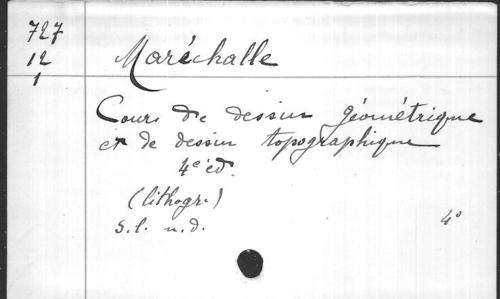 727
12
1
Maréchalle
Cours de dessin géométrique
et de dessin topographique
4e éd.
(lithogr.)
s.l. n.d. 4°